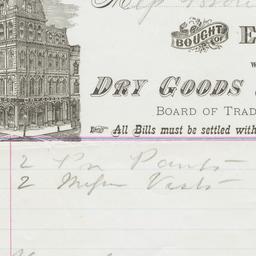 BOUGHT OF E
W
DRY GOODS
BOARD OF TRAD
All Bills must be settled with
2 Pr Pants
2 Vests